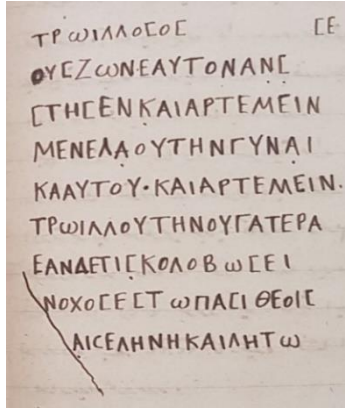 ΤΡωΙΛΛΟСΟС СΕ
ΟΥСΖωΝΕΑΥΤΟΝΑΝС
СΤΗСΕΝΚΑΙΑΡΤΕΜΕΙΝ
ΜΕΝΕΛΑΟΥΤΗΝΓΥΝΑΙ
ΚΑΑΥΤΟΥ·ΚΑΙΑΡΤΕΜΕΙΝ.
ΤΡωΙΛΛΟΥΤΗΝΟΥΓΑΤΕΡΑ
ΕΑΝΔΕΤΙСΚΟΛΟΒωСΕΙ
ΝΟΧΟСΕСΤωΠΑСΙΘΕΟΙС
ΑΙСΕΛΗΝΗΚΑΙΛΗΤω